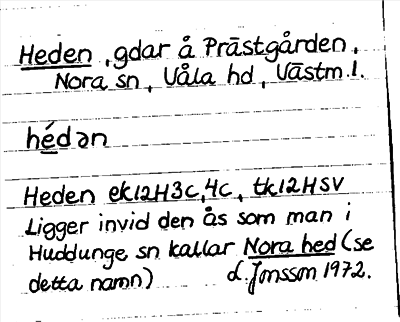 Heden, gdar å Prästgården,
Nora sn, Våla hd, Västm.l.
hé̱dən
Heden ek12H3c,4c, tk12HSV
Ligger invid den ås som man i
Huddunge sn kallar Nora hed (se
detta namn) L. Jonsson 1972.